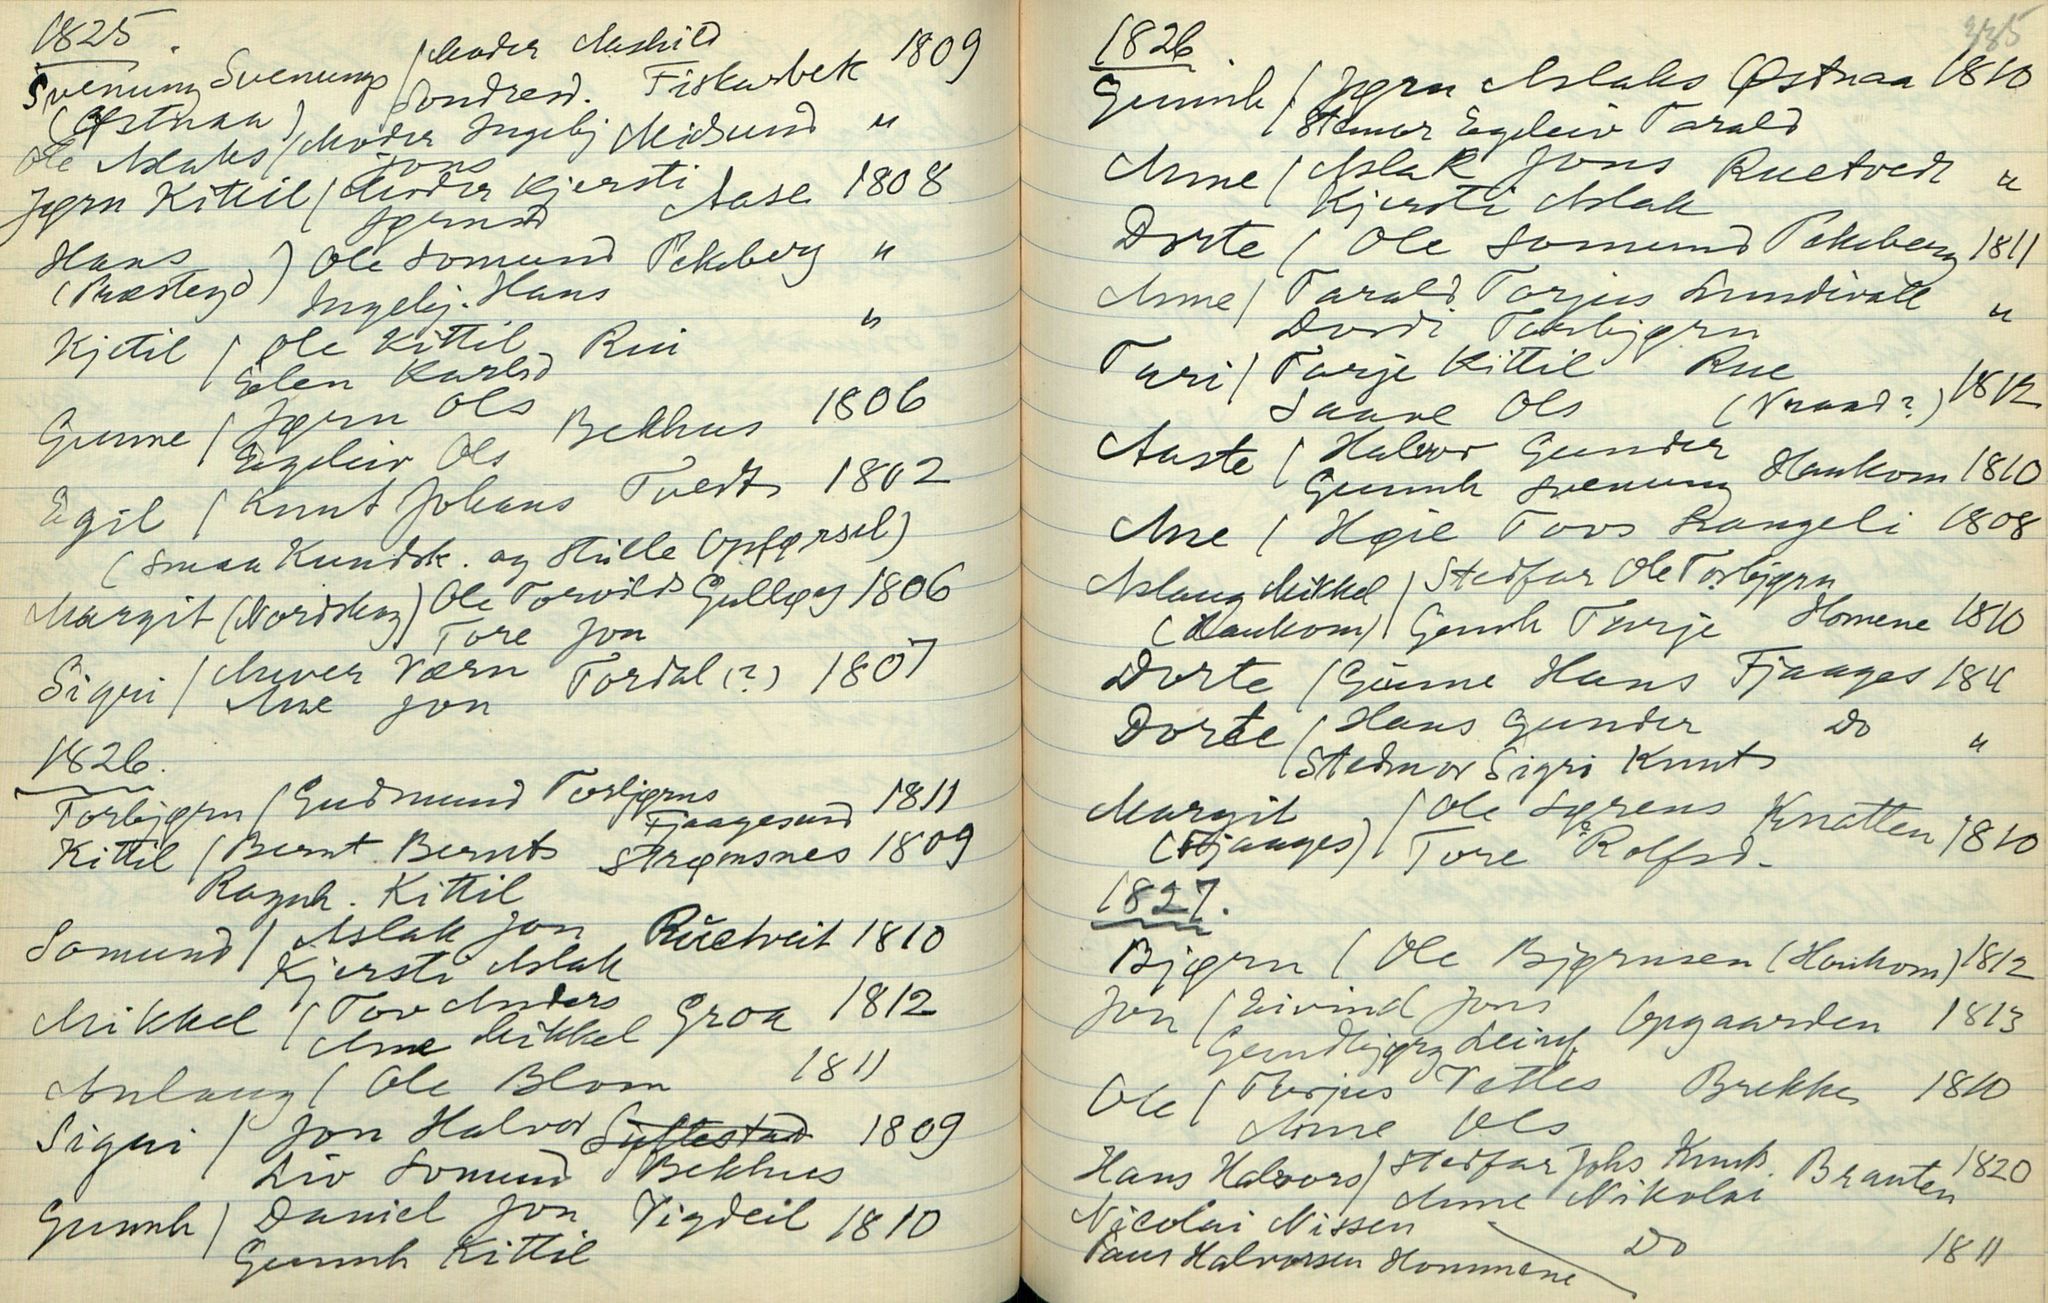 1825.
Svenung Svenungs / Moder Aashild
(Østraa) Sondresd. Fiskarbek 1809
Ole Aslaks / Moder Ingebj Midsund "
Jons
Jørn Kittil / Moder Kjersti
Jørnsd Aase 1808
Hans ) Ole Somund Pekeberg "
(Præstegd) Ingebj. Hans
Kjetil / Ole Kittil Rui "
Elen Karlsd
Gunne / Jørn Ols Bekhus 1806
Egeleiv Ols
Egil / Knut Johans Tvedt 1802
(Smaa Kundsk. og Stille Opførsel)
Margit (Nordskog) Ole Torvilds Gulløy 1806
Tore Jon
Sigri / Anver Værn Tordal (?) 1807
Ane Jon
1826.
Torbjørn / Gudmund Torbjørns
Fjaagesund 1811
Kittil / Bernt Bernts Strømsnes 1809
Ragnh. Kittil
Somund / Aslak Jon Ruetveit 1810
Kjersti Aslak
Mikkel / Tov Anders Groa 1812
Anne Mikkel
Anlaug / Ole Blom 1811
Sigri / Jon Halvor Syftestad 1809
Liv Somund Bekhus
Gunnh / Daniel Jon Vigdeil 1810
Gunnh Kittil
335
1826
Gunnh / Jørn Aslaks Østraa 1810
Stemor Egeleiv Tarald
Anne / Aslak Jons Ruetvedt "
Kjersti Aslak
Dorte / Ole Somund Pekeberg 1811
Anne / Tarald Torjus Sundivall "
Dordi Torbjørn
Turi / Tarje Kittil Rue
Saave Ols (Vraad?) 1812
Aaste / Halvor Gunder
Gunnh Svenung Haukom 1810
Ane / Høie Tovs Langeli 1808
Aslaug Mikkel / Stedfar Ole Torbjørn
(Haukom) / Gunh Tarje Homene 1810
Dorte / Gunne Hans Fjaages 1811
Dorte / Hans Gunder Do "
Stedmor Sigri Knuts
Margit / Ole Sørens Knatten 1810
(Fjaages) Tore Rolfsd.
1827.
Bjørn / Ole Bjørnsen (Haukom) 1812
Jon / Eivind Jons Opgaarden 1813
Gundbjørg Leinf.
Ole / Torjus Vetles Brekke 1810
Anne Ols
Hans Halvors / Stedfar Johs Knuts. Brauten 1820
Anne Nikolai
Nicolai Nissen
Do 1811
Paul Halvorsen Hommene